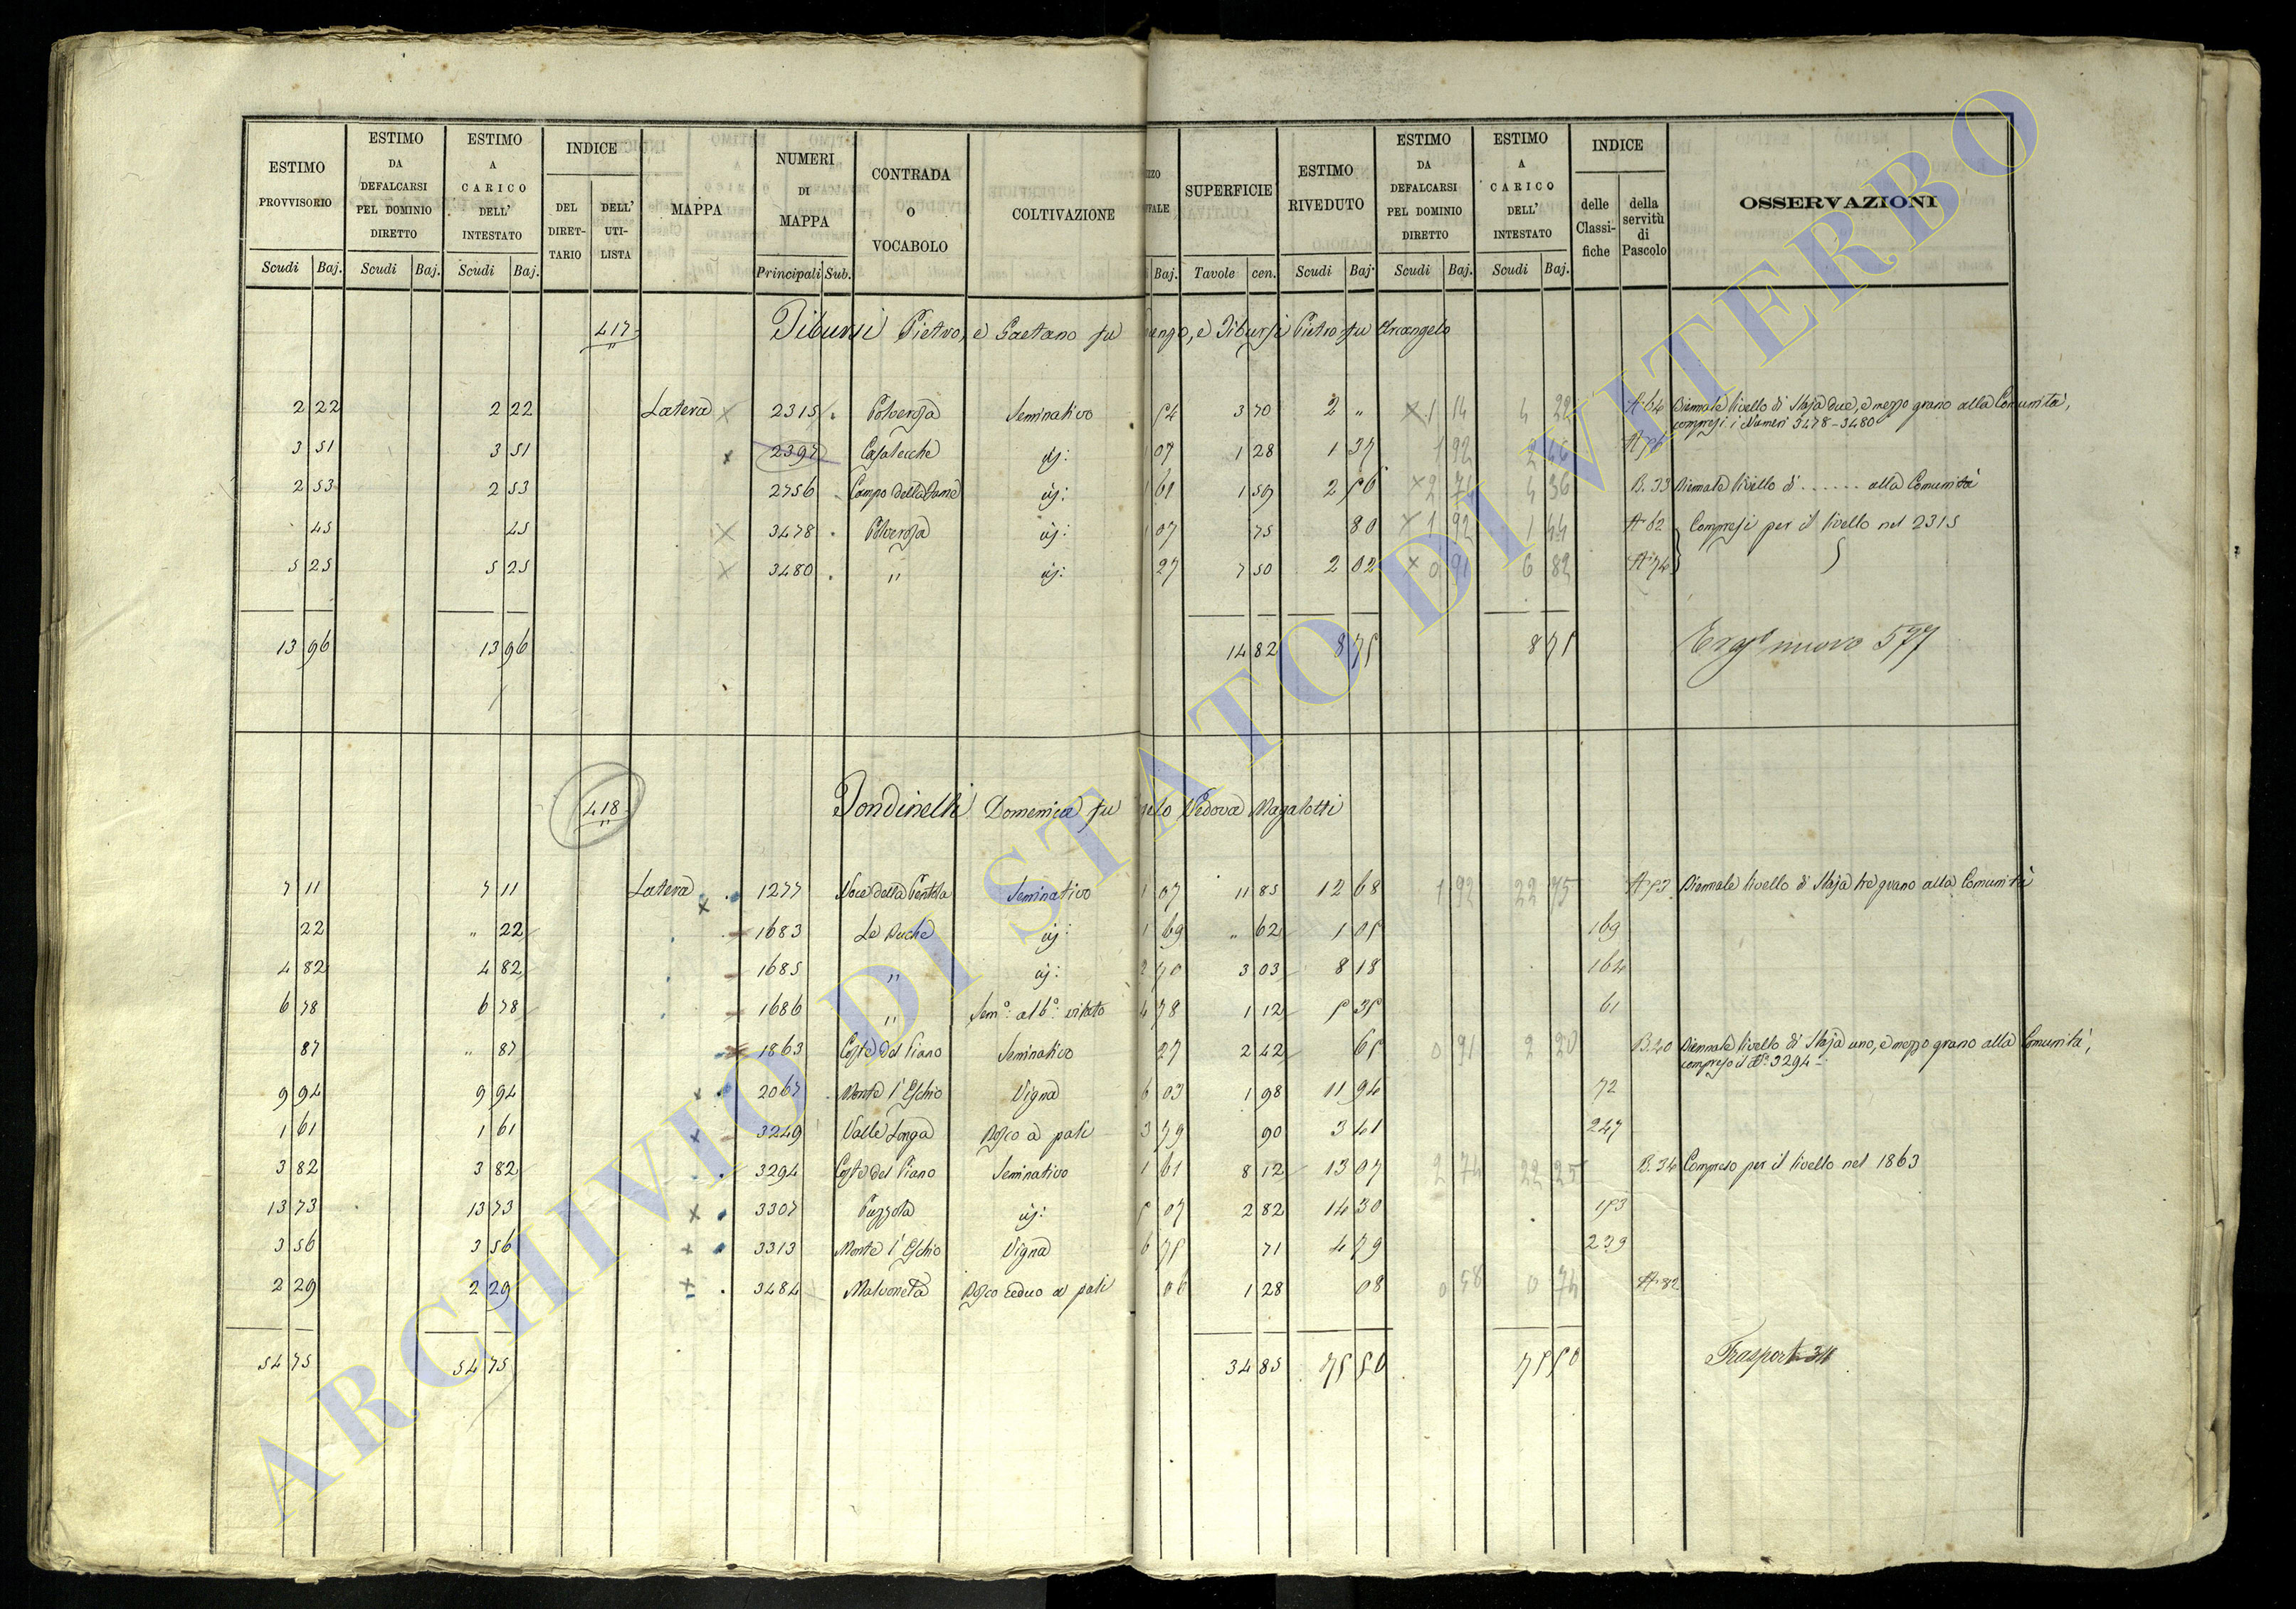 ESTIMO PROVVISORIO | ESTIMO DA DEFALCARSI PEL DOMINIO DIRETTO | ESTIMO A CARICO DELL' INTESTATO | INDICE DEL DIRETTARIO | DELL' UTILISTA | MAPPA | NUMERI DI MAPPA | CONTRADA O VOCABOLO | COLTIVAZIONE | SUPERFICIE | ESTIMO RIVEDUTO | ESTIMO DA DEFALCARSI PEL DOMINIO DIRETTO | ESTIMO A CARICO DELL' INTESTATO | INDICE delle Classifiche | della servitù di Pascolo | OSSERVAZIONI
Scudi Baj. Scudi Baj. Scudi Baj. Principali Sub. Baj. Tavole cen. Scudi Baj. Scudi Baj. Scudi Baj.
417 Tibursi Pietro, e Gaetano fu , e Tibursi Pietro fu Arcangelo
2 22 2 22 Latera 2315 Polverosa Seminativo 54 3 70 2 " 1 14 4 22 A 64 Biennale livello di Staja due, e mezzo grano alla Comunità,
compresi i Numeri 3478-3480
3 51 3 51 2397 Casalecchie 07 1 28 1 37 1 92
2 53 2 53 2756 Campo della Dama 61 1 59 2 56 2 74 4 36 B. 33 Biennale livello di ...... alla Comunità
45 45 3478 Polverosa 07 75 80 1 92 1 44 A 62 Compresi per il livello nel 2315
5 25 5 25 3480 " 27 7 50 2 02 0 91 6 82 A 74
13 96 13 96 14 82 8 75 8 75 nuovo 577
418 Tondinelli Domenica fu Vedova Magalotti
7 11 7 11 Latera 1277 Noce della Pentola Seminativo 1 07 11 85 12 68 1 92 22 75 A 53 Biennale livello di Staja tre grano alla Comunità
22 " 22 1683 Le Buche 1 69 " 62 1 05 169
4 82 4 82 1685 " 2 70 3 03 8 18 164
6 78 6 78 1686 " Sem.o alb.o vitato 4 78 1 12 5 35 61
87 " 87 1863 Coste del Piano Seminativo 27 2 42 65 0 91 2 20 B. 20 Biennale livello di Staja uno, e mezzo grano alla Comunità,
compreso il N.o 3294
9 94 9 94 2067 Monte l'Eschio Vigna 6 03 1 98 11 94 72
1 61 1 61 3249 Valle Longa Bosco a pali 3 79 90 3 41 247
3 82 3 82 3294 Coste del Piano Seminativo 1 61 8 12 13 07 2 74 22 25 B. 34 Compreso per il livello nel 1863
13 73 13 73 3307 Puzzola 5 07 2 82 14 30 153
3 56 3 56 3313 Monte l'Eschio Vigna 6 75 71 4 79 239
2 29 2 29 3484 Malvoneta Bosco ceduo a pali 06 1 28 08 0 58 0 74 A 82
54 75 54 75 34 85 75 50 75 50
ARCHIVIO DI STATO DI VITERBO